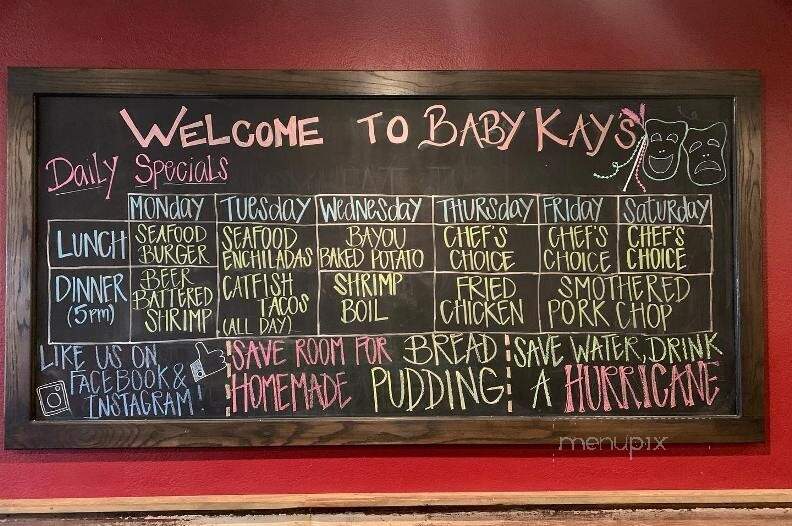 WELCOME TO BABY KAY'S
Daily Specials
MONday TUESday WEdNESday THURSday FRIday SATURday
LUNCH SEAFOOD BURGER SEAFOOD ENCHILADAS BAYOU BAKED POTATO CHEF'S CHOICE CHEF'S CHOICE CHEF'S CHOICE
DINNER (5pm) BEER BATTERED SHRIMP CATFISH TACOS (ALL DAY) SHRIMP BOIL FRIED CHICKEN SMOTHERED PORK CHOP
LIKE US ON
FACEBOOK &
INSTAGRAM!
SAVE ROOM FOR BREAD
HOMEMADE PUDDING
SAVE WATER, DRINK
A HURRICANE
menupix